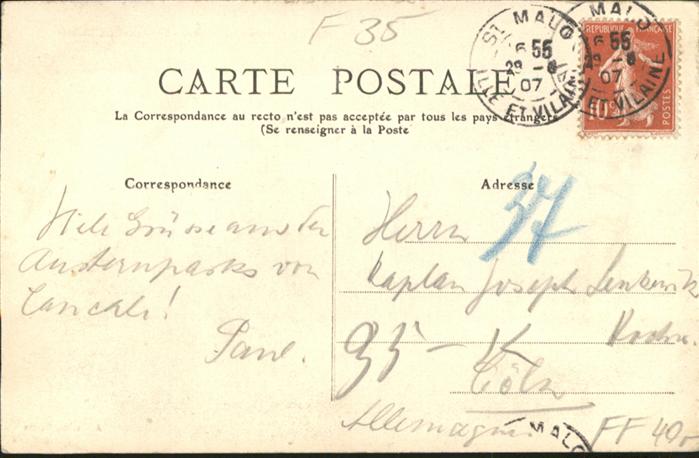 F 35
ST MALO
6 55
29 - 8
07
ILLE ET VILAINE
MALO
6 55
29 - 8
07
ET VILAINE
REPUBLIQUE FRANÇAISE
10c
POSTES
CARTE POSTALE
La Correspondance au recto n'est pas acceptée par tous les pays étrangers
(Se renseigner à la Poste
Correspondance
Adresse
37
Viele Grüsse aus den
Austernparks von
Cancale!
Paul.
Herrn
Kaplan Joseph
95 -
Cöln
Allemagne
MALO
FF 40,-